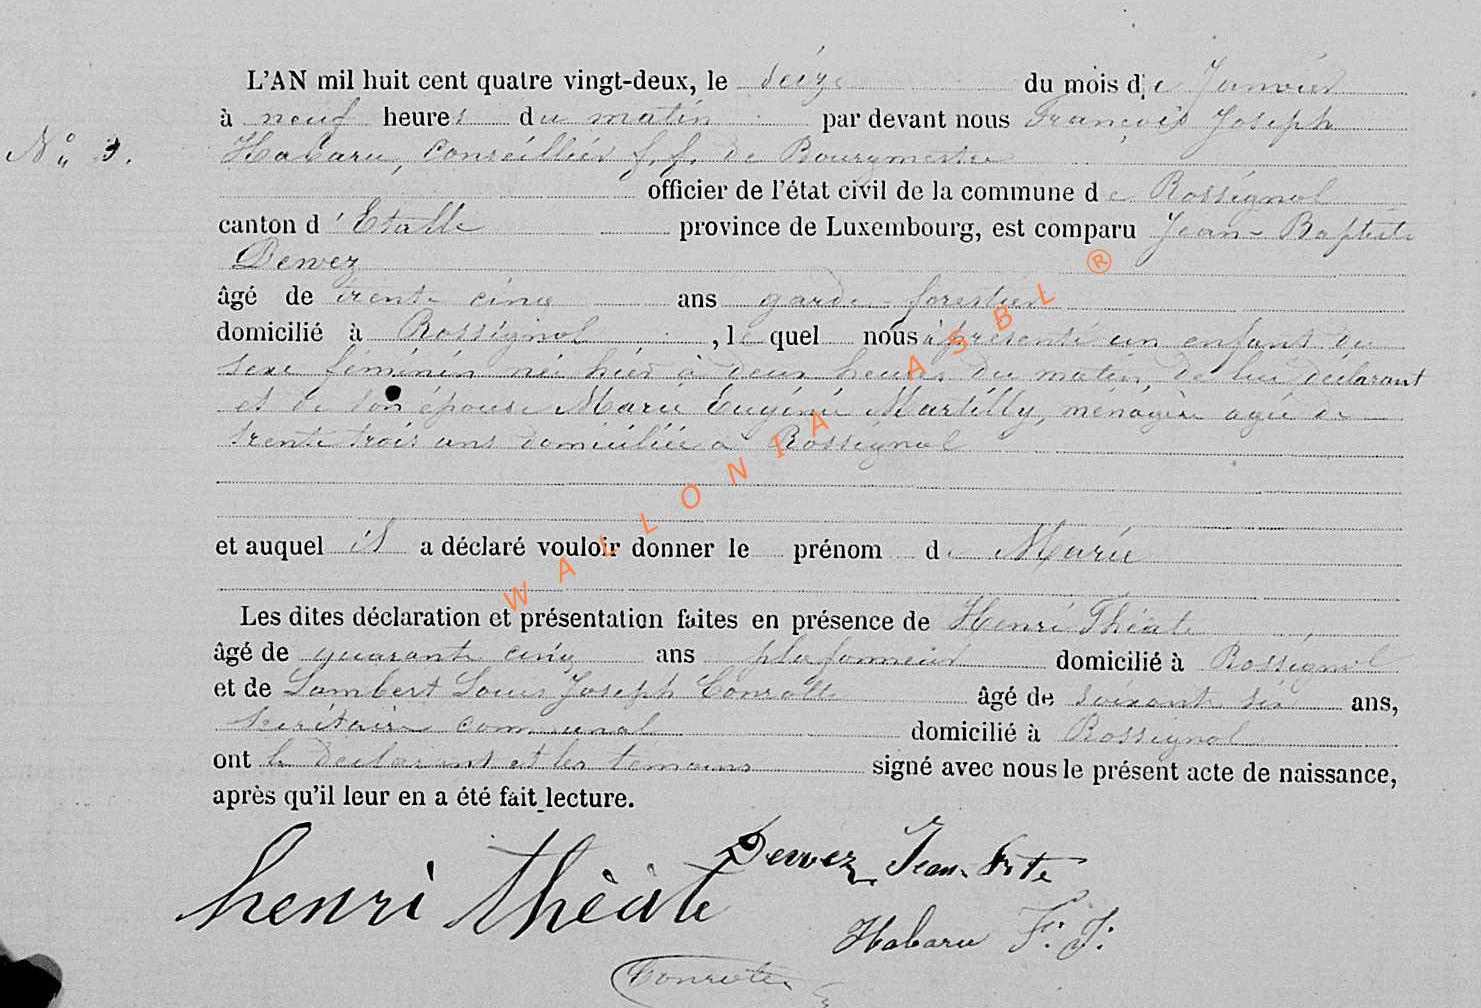 L'AN mil huit cent quatre vingt-deux, le seize du mois de Janvier
à neuf heures du matin par devant nous François Joseph
N° 3. Habaru, Conseillier f. f. de Bourgmestre
officier de l'état civil de la commune de Rossignol
canton d'Etalle province de Luxembourg, est comparu Jean-Baptiste
Dewez
âgé de trente cinq ans garde-forestier
domicilié à Rossignol, le quel nous à présenté un enfant du
sexe féminin né hier à deux heures du matin, de lui déclarant
et de son épouse Marie Eugénie Martilly, ménagère agée de
trente trois ans domiciliée à Rossignol
et auquel il a déclaré vouloir donner le prénom de Marie
Les dites déclaration et présentation faites en présence de Henri Théate
âgé de quarante cinq ans plafonneur domicilié à Rossignol
et de Lambert Louis Joseph Conrotte âgé de soixante six ans,
secrétaire communal domicilié à Rossignol
ont le déclarant et les temoins signé avec nous le présent acte de naissance,
après qu'il leur en a été fait lecture.
Dewez Jean-Bte
henri théate
Habaru F. J.
Conrotte
WALLONIA ASBL ®